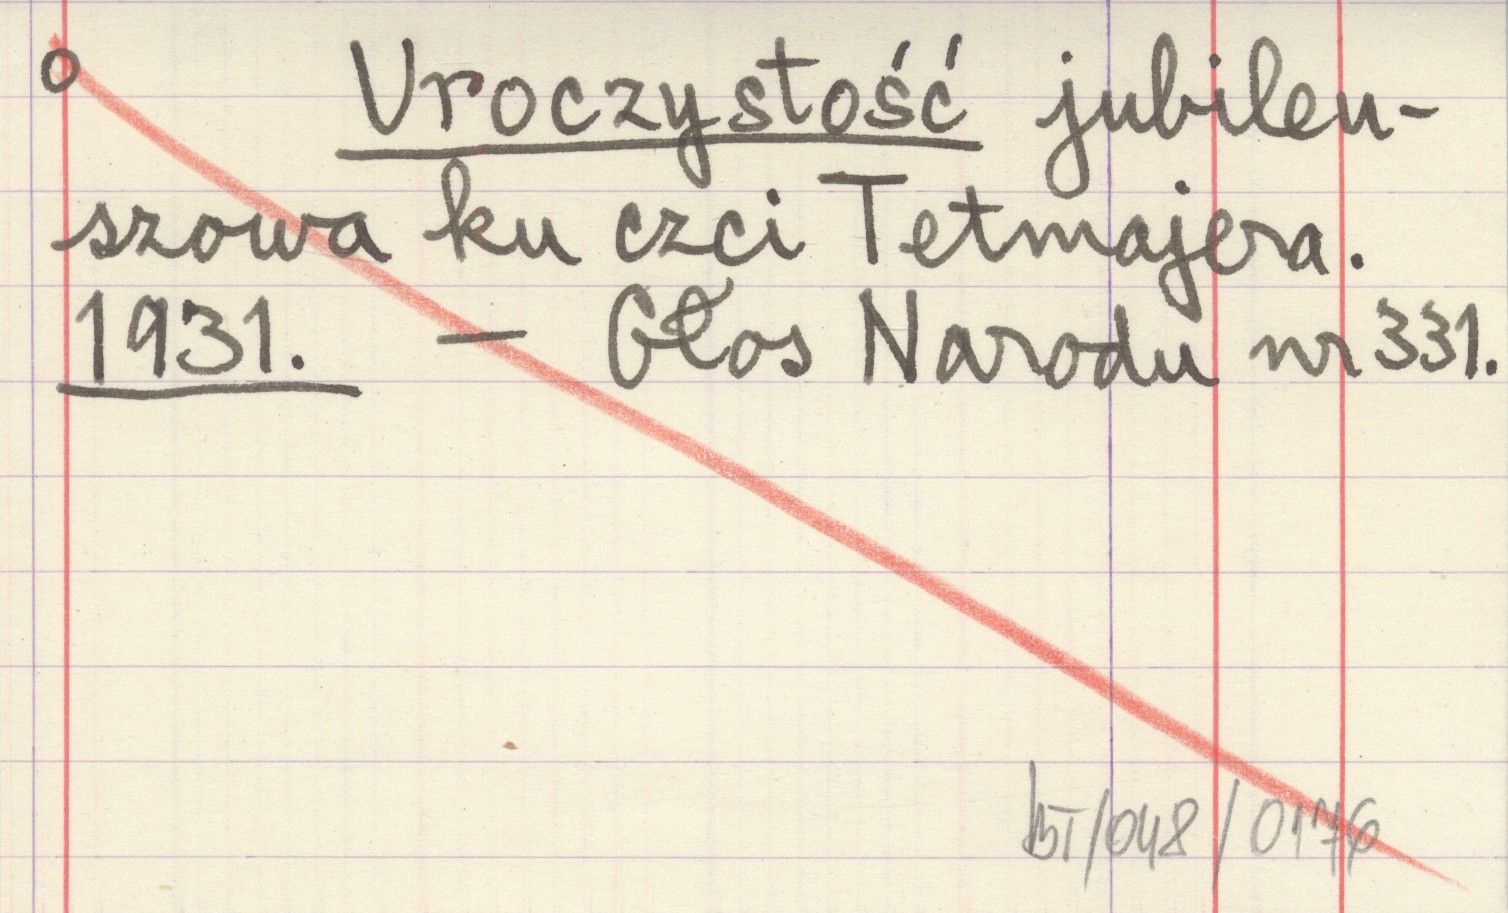 o Uroczystość jubileu-
szowa ku czci Tetmajera.
1931. — Głos Narodu nr 331.
bT/048/0176